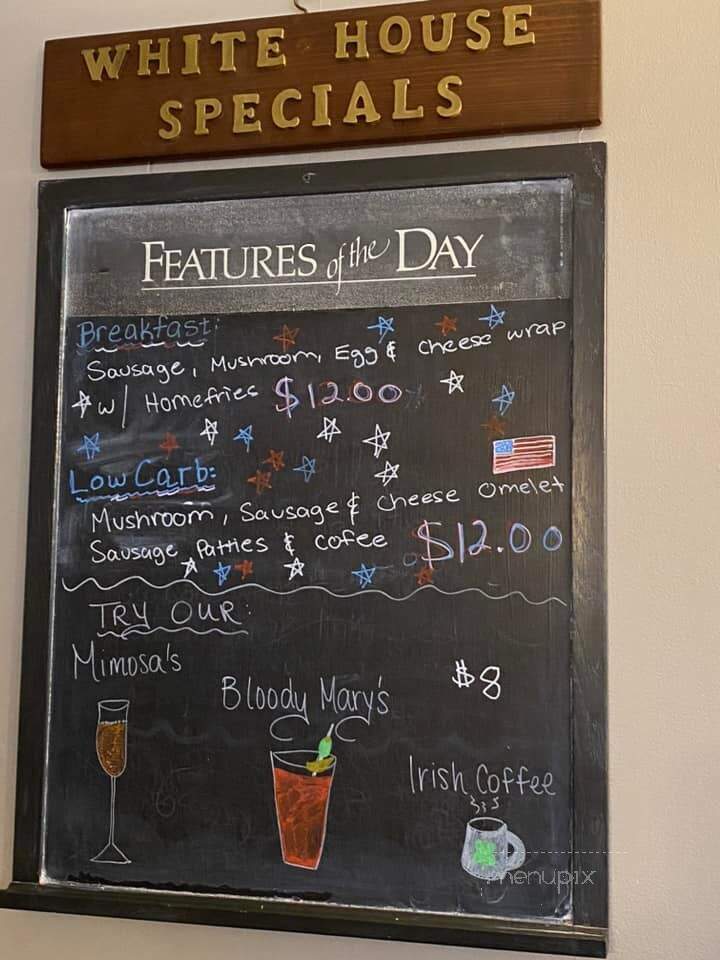 WHITE HOUSE
SPECIALS
FEATURES of the DAY
Breakfast:
Sausage, Mushroom, Egg & cheese wrap
w/ Homefries $12.00
Low Carb:
Mushroom, Sausage & Cheese Omelet
Sausage Patties & Cofee $12.00
TRY OUR:
Mimosa's
Bloody Mary's
$8
Irish Coffee
menupix